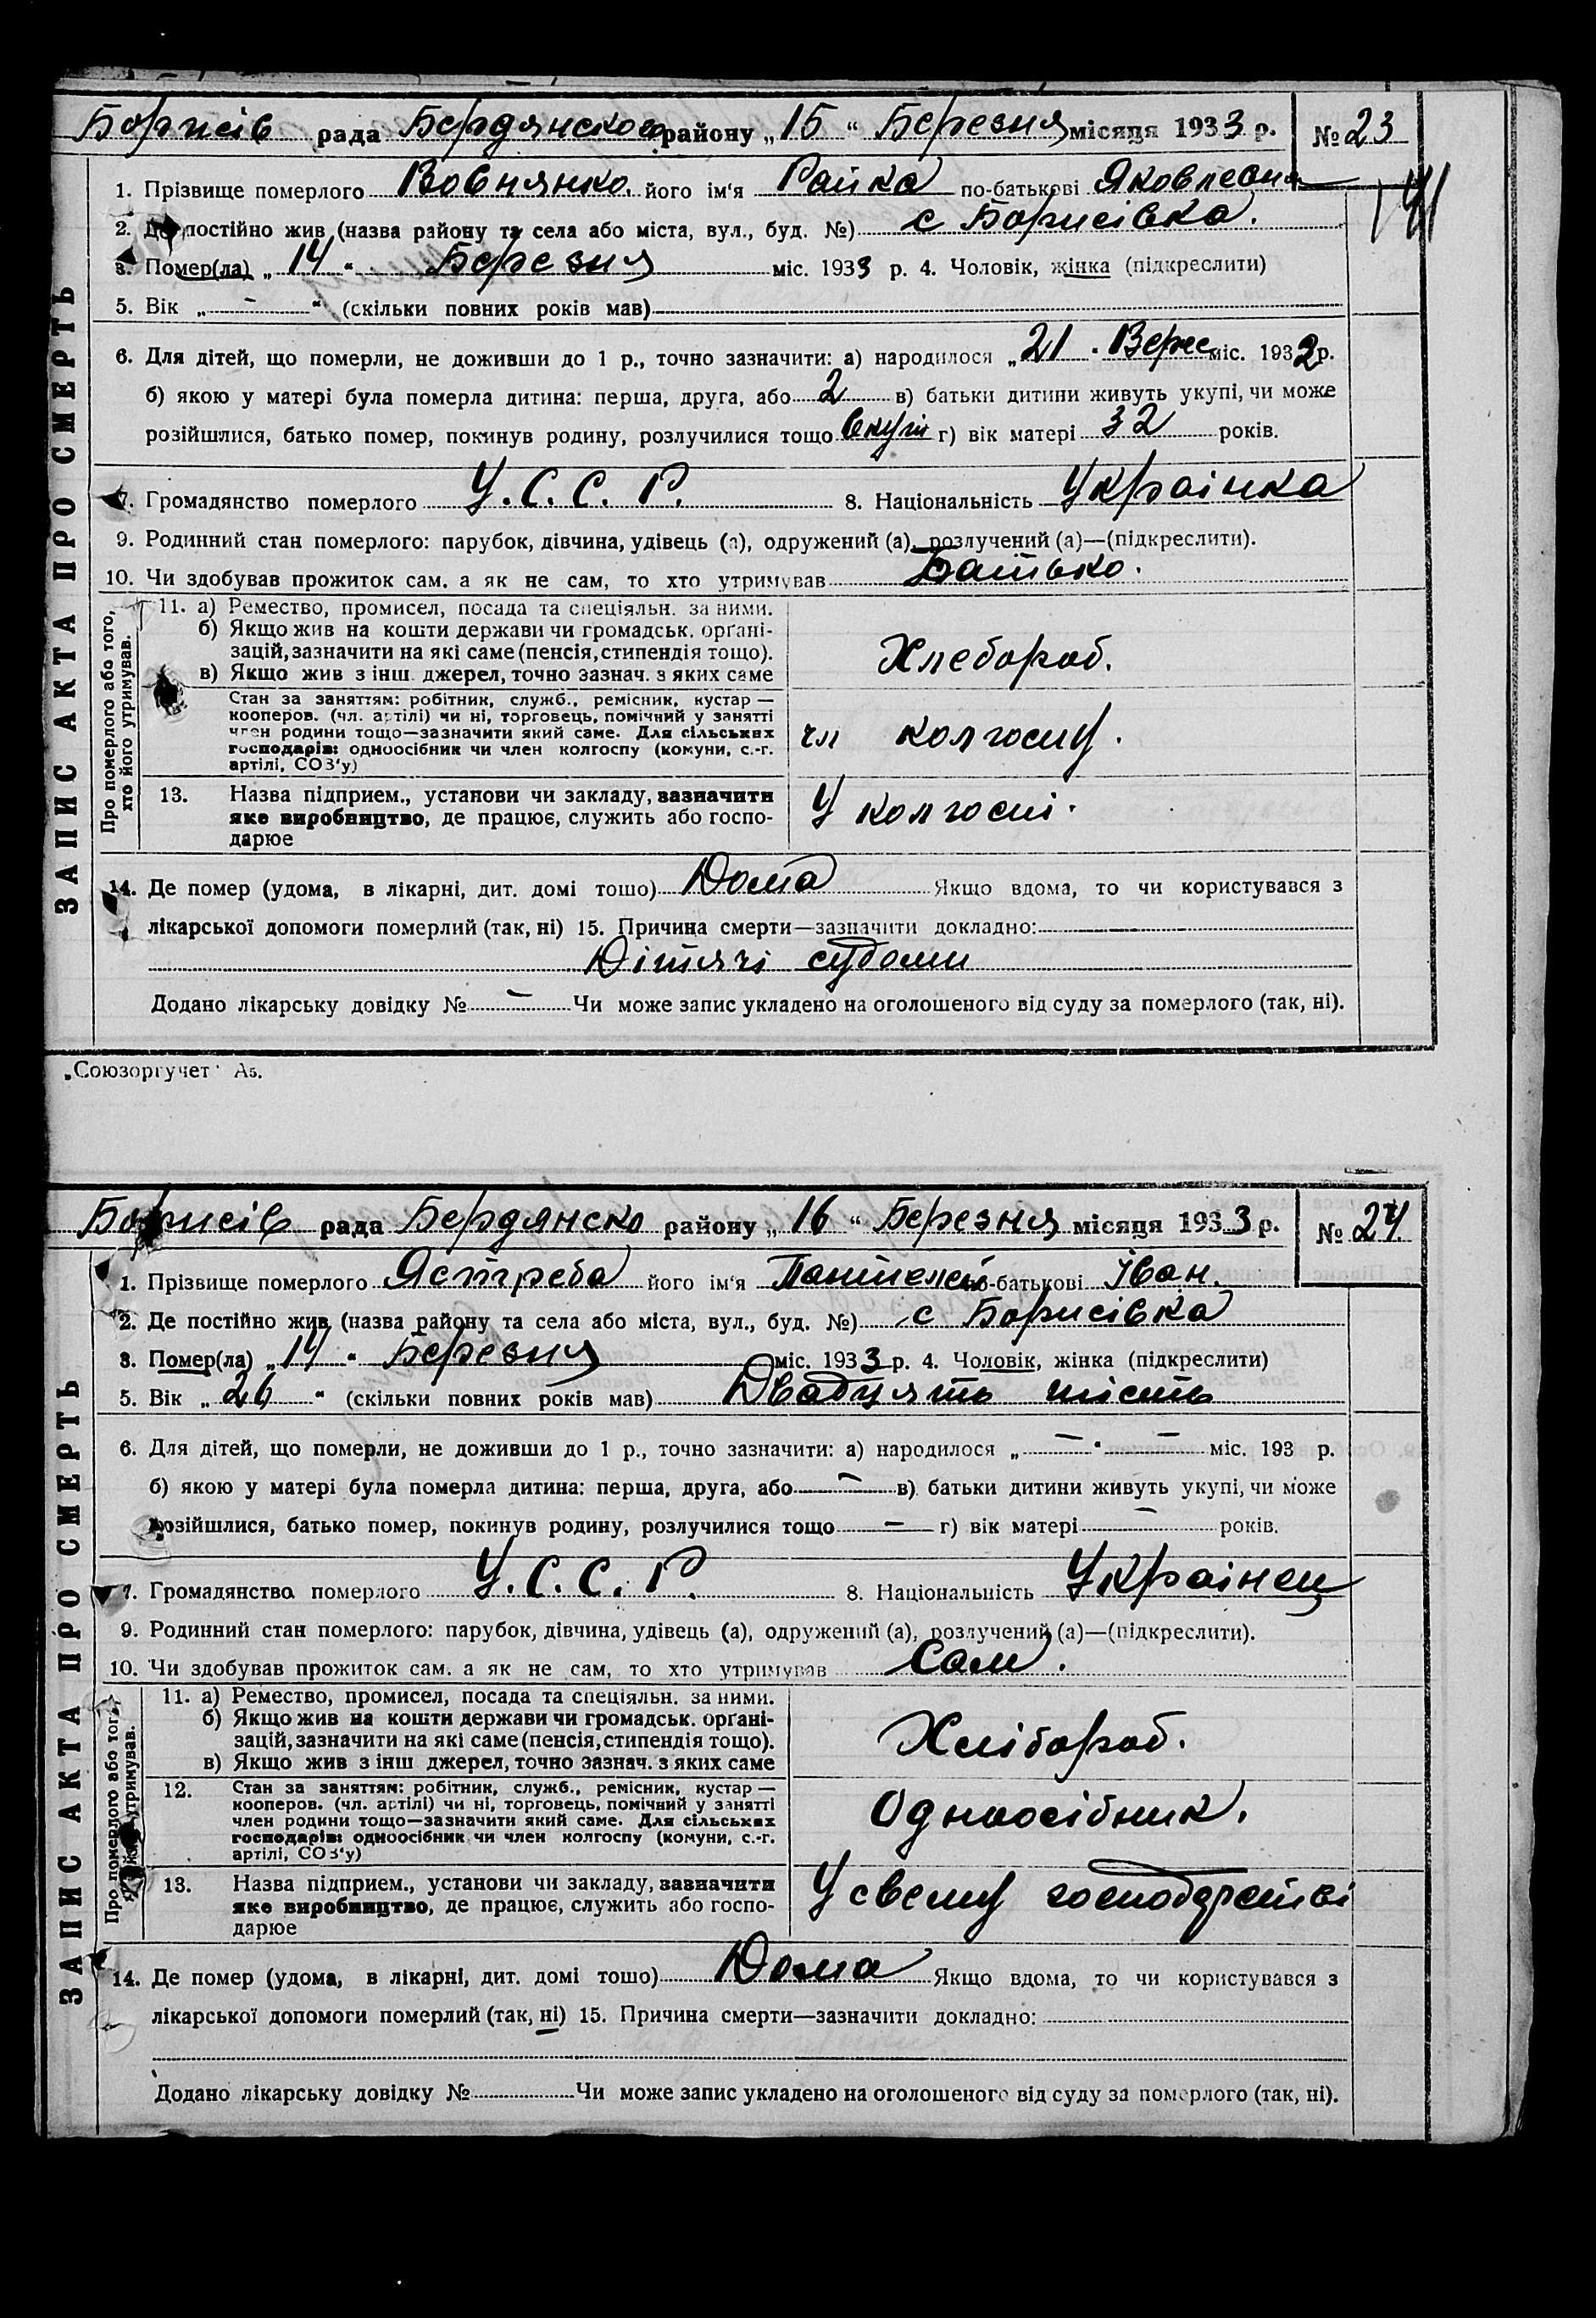 Борисів рада Бердянского району „15“ Березня місяця 1933 р. № 23
141
1. Прізвище померлого Вовнянко його ім'я Раика по-батькові Яковлевна
2. Де постійно жив (назва району та села або міста, вул., буд. №) с Борисівка.
3. Помер(ла) „14“ Березня міс. 1933 р. 4. Чоловік, жінка (підкреслити)
5. Вік „ – “ (скільки повних років мав)
6. Для дітей, що померли, не доживши до 1 р., точно зазначити: а) народилося „21“ Верес міс. 1932 р.
б) якою у матері була померла дитина: перша, друга, або 2 в) батьки дитини живуть укупі, чи може
розійшлися, батько помер, покинув родину, розлучилися тощо вкупі г) вік матері 32 років.
7. Громадянство померлого У.С.С.Р. 8. Національність Украінка
9. Родинний стан померлого: парубок, дівчина, удівець (а), одружений (а), розлучений (а)—(підкреслити).
10. Чи здобував прожиток сам. а як не сам, то хто утримував Батько.
Про померлого або того, хто його утримував.
11. а) Ремество, промисел, посада та спеціяльн. за ними.
б) Якщо жив на кошти держави чи громадськ. органі-
зацій, зазначити на які саме (пенсія, стипендія тощо).
в) Якщо жив з інш. джерел, точно зазнач. з яких саме
Хлебороб.
Стан за заняттям: робітник, служб., ремісник, кустар —
кооперов. (чл. артілі) чи ні, торговець, помічний у занятті
член родини тощо—зазначити який саме. Для сільських
господарів: одноосібник чи член колгоспу (комуни, с.-г.
артілі, СОЗ'у)
чл колгоспу.
13. Назва підприєм., установи чи закладу, зазначити
яке виробництво, де працює, служить або госпо-
дарює
У колгоспі.
14. Де помер (удома, в лікарні, дит. домі тошо) Дома Якщо вдома, то чи користувався з
лікарської допомоги померлий (так, ні) 15. Причина смерти—зазначити докладно:
Дітячі судоми
Додано лікарську довідку № – Чи може запис укладено на оголошеного від суду за померлого (так, ні).
ЗАПИС АКТА ПРО СМЕРТЬ
„Союзоргучет" Аз.
Борисів рада Бердянско району „16“ Березня місяця 1933 р. № 24
1. Прізвище померлого Ястреба його ім'я Пантелей по-батькові Іван.
2. Де постійно жив (назва району та села або міста, вул., буд. №) с Борисівка
3. Помер(ла) „14“ Березня міс. 1933 р. 4. Чоловік, жінка (підкреслити)
5. Вік „26“ (скільки повних років мав) Двадцять шість
6. Для дітей, що померли, не доживши до 1 р., точно зазначити: а) народилося „ – “ – міс. 193 р.
б) якою у матері була померла дитина: перша, друга, або – в) батьки дитини живуть укупі, чи може
розійшлися, батько помер, покинув родину, розлучилися тощо – г) вік матері – років.
7. Громадянство померлого У.С.С.Р. 8. Національність Украінец
9. Родинний стан померлого: парубок, дівчина, удівець (а), одружений (а), розлучений (а)—(підкреслити).
10. Чи здобував прожиток сам. а як не сам, то хто утримував Сам.
Про померлого або того, утримував.
11. а) Ремество, промисел, посада та спеціяльн. за ними.
б) Якщо жив на кошти держави чи громадськ. органі-
зацій, зазначити на які саме (пенсія, стипендія тощо).
в) Якщо жив з інш джерел, точно зазнач. з яких саме
Хлібороб.
12. Стан за заняттям: робітник, служб., ремісник, кустар —
кооперов. (чл. артілі) чи ні, торговець, помічний у занятті
член родини тощо—зазначити який саме. Для сільських
господарів: одноосібник чи член колгоспу (комуни, с.-г.
артілі, СОЗ'у)
Одноосібник.
13. Назва підприєм., установи чи закладу, зазначити
яке виробництво, де працює, служить або госпо-
дарює
У свему господрстві
14. Де помер (удома, в лікарні, дит. домі тошо) Дома Якщо вдома, то чи користувався з
лікарської допомоги померлий (так, ні) 15. Причина смерти—зазначити докладно:
Додано лікарську довідку № Чи може запис укладено на оголошеного від суду за померлого (так, ні).
ЗАПИС АКТА ПРО СМЕРТЬ